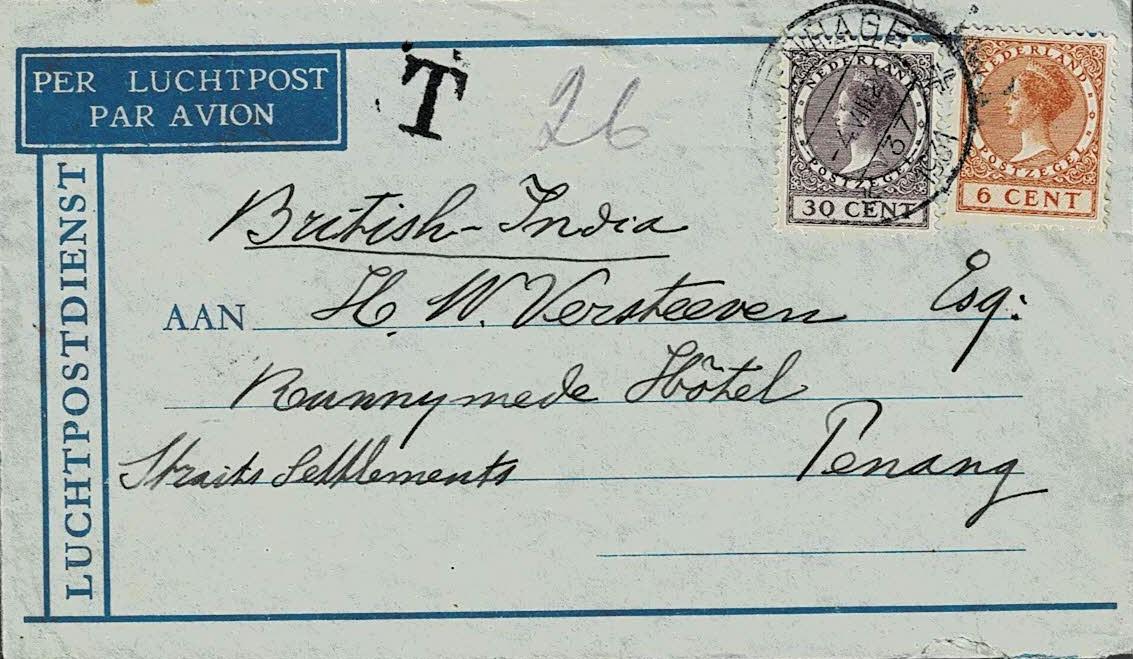 PER LUCHTPOST
PAR AVION
LUCHTPOSTDIENST
T
26
NEDERLAND
POSTZEGEL
30 CENT
NEDERLAND
POSTZEGEL
6 CENT
British-India
AAN H. W. Versteeven Esq:
Runnymede Hôtel
Straits Settlements Penang